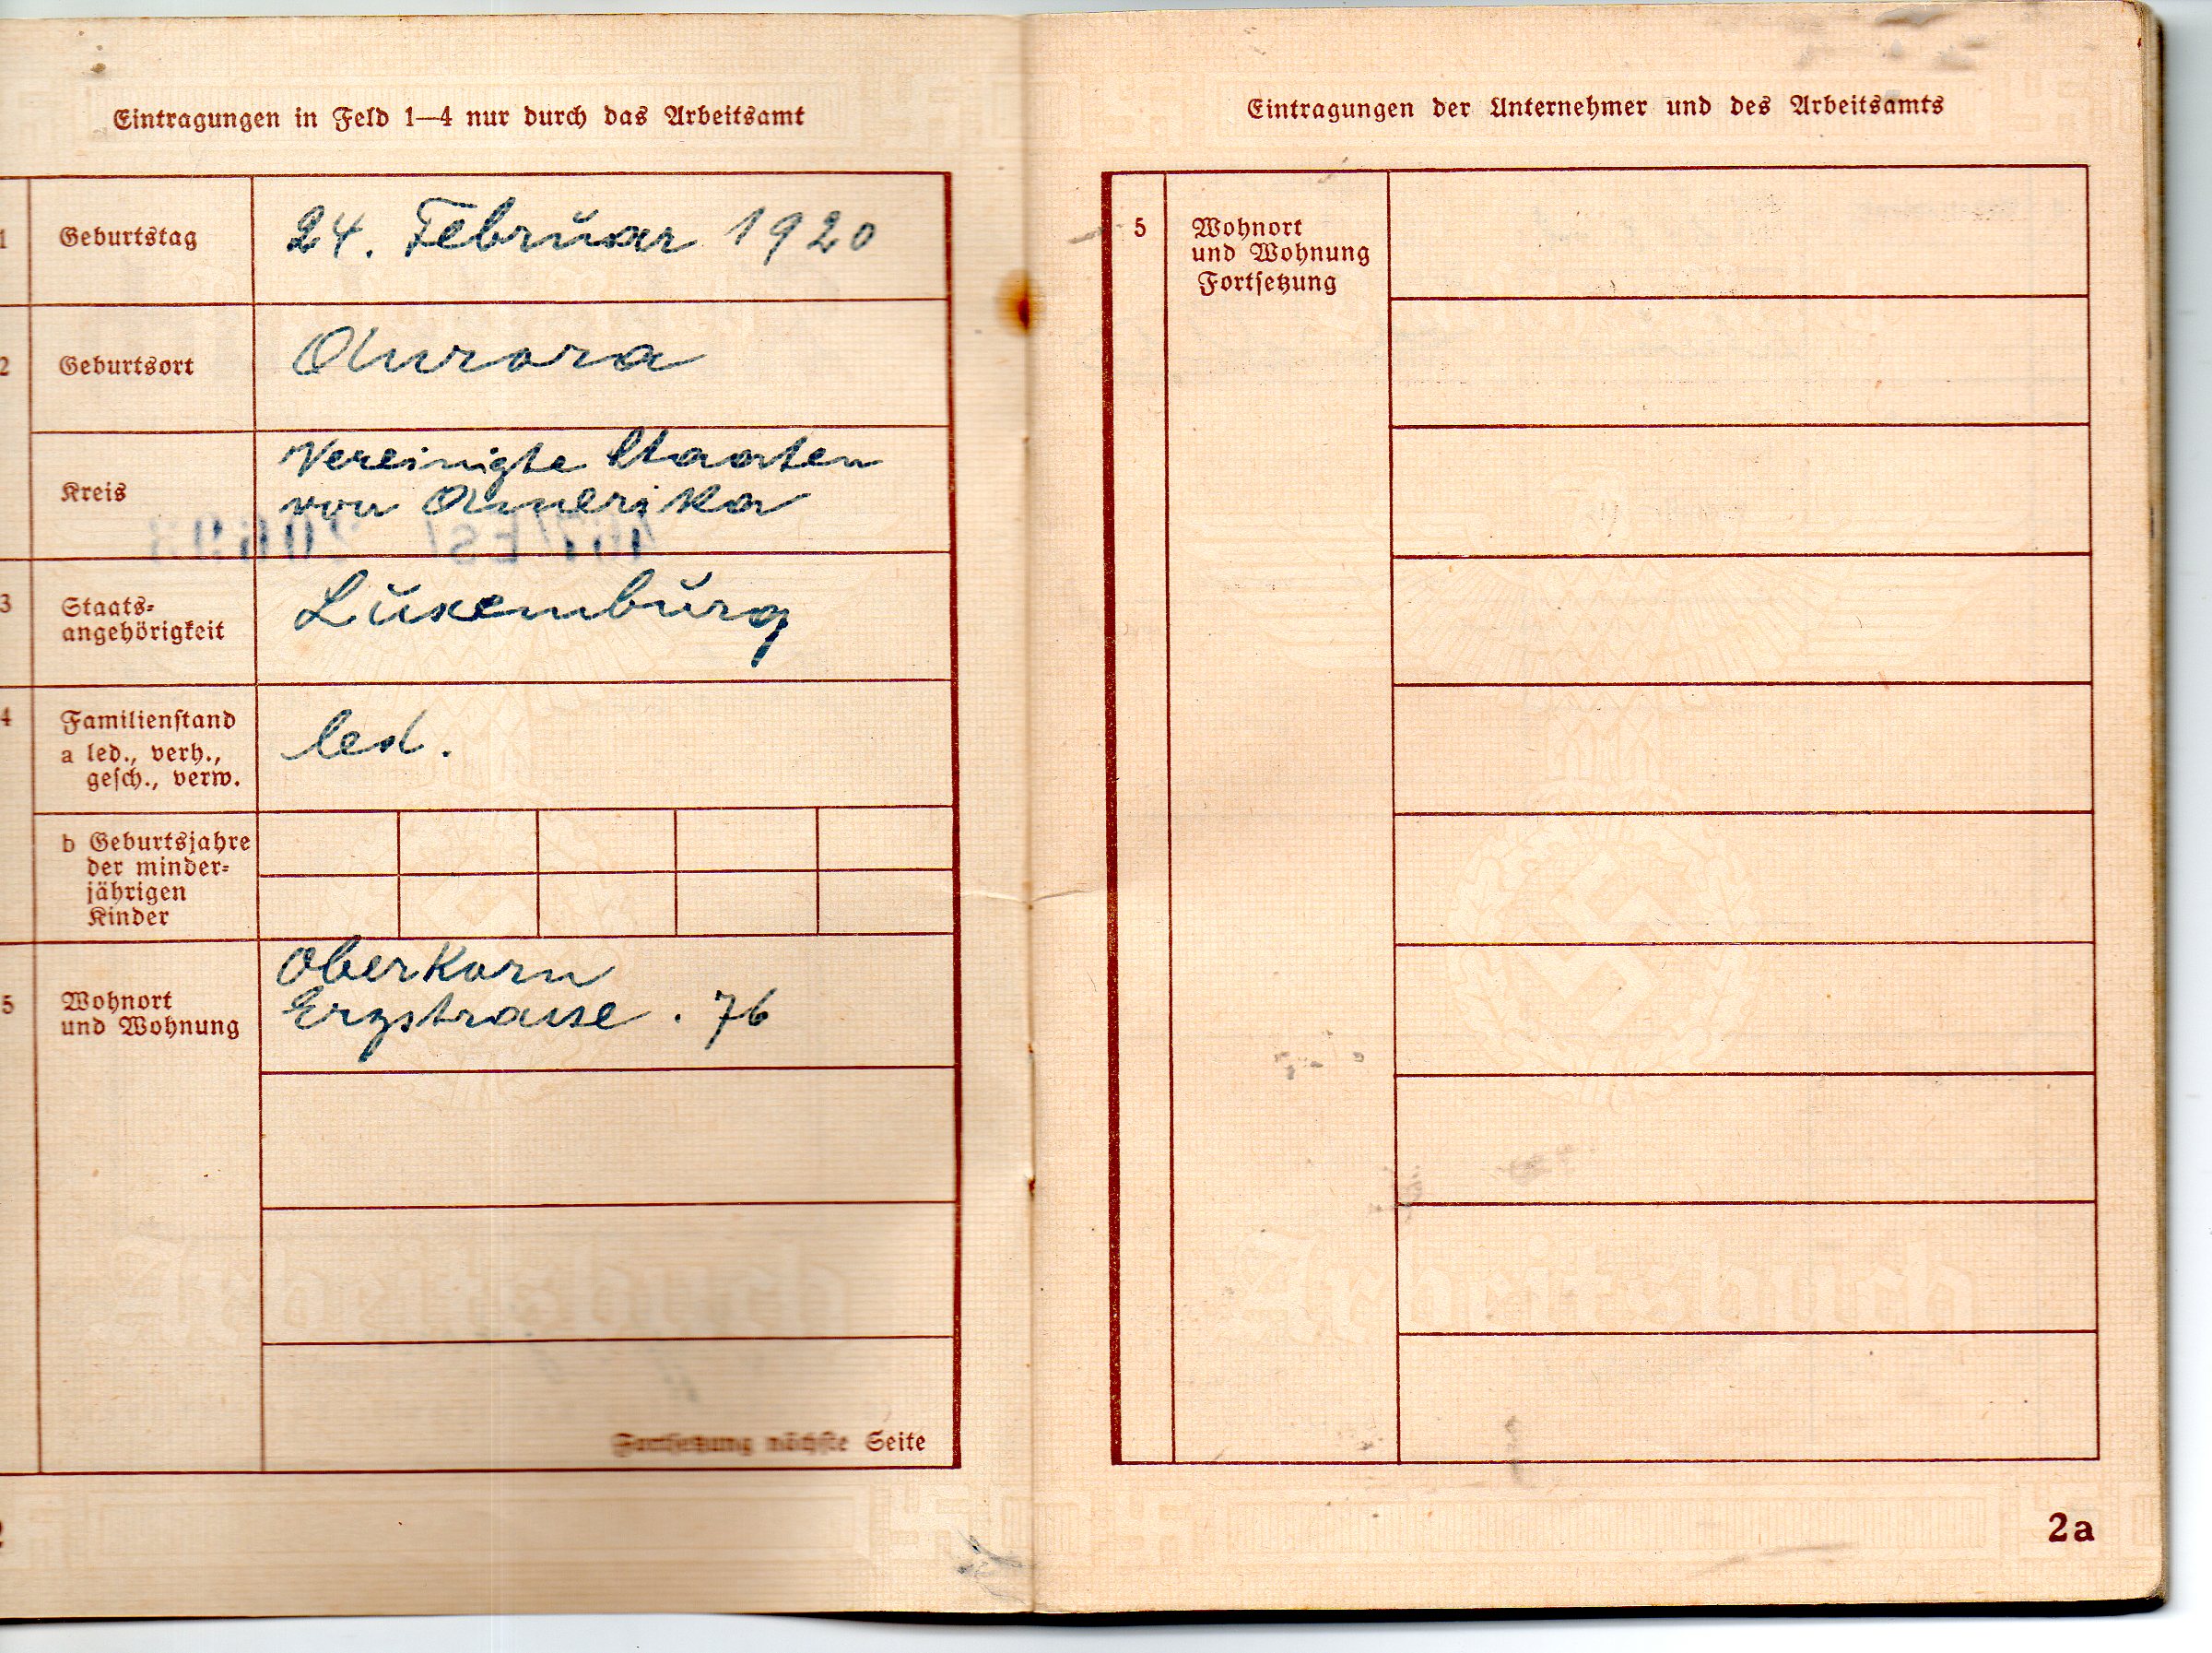 Eintragungen in Feld 1—4 nur durch das Arbeitsamt
1 Geburtstag 24. Februar 1920
2 Geburtsort Aurora
Kreis Vereinigte Staaten
von Amerika
3 Staats-
angehörigkeit Luxemburg
4 Familienstand
a led., verh.,
gesch., verw. led.
b Geburtsjahre
der minder-
jährigen
Kinder
5 Wohnort
und Wohnung Oberkorn
Erzstrasse . 76
Fortsetzung nächste Seite
Arbeitsbuch
Eintragungen der Unternehmer und des Arbeitsamts
5 Wohnort
und Wohnung
Fortsetzung
Arbeitsbuch
2a